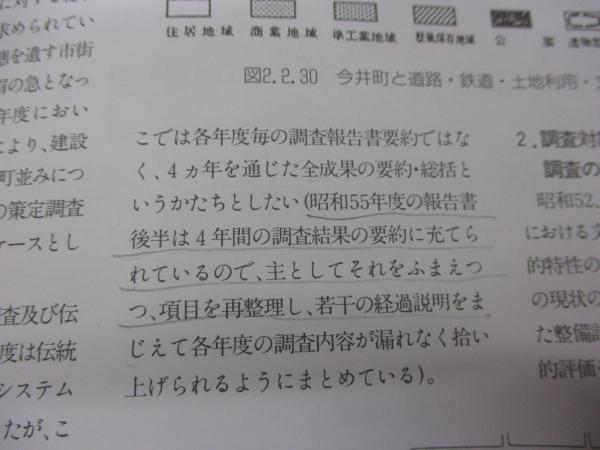 に対する
求められてい
態を遺す市街
眉の急となっ
年度におい
により、建設
町並みにつ
の策定調査
ケースとし
査及び伝
度は伝統
システム
たが、こ
住居地域
商業地域
準工業地域
歴風保存地域
公
図2.2.30 今井町と道路・鉄道・土地利用・
こでは各年度毎の調査報告書要約ではな
く、4ヵ年を通じた全成果の要約・総括と
いうかたちとしたい(昭和55年度の報告書
後半は4年間の調査結果の要約に充てら
れているので、主としてそれをふまえつ
つ、項目を再整理し、若干の経過説明をま
じえて各年度の調査内容が漏れなく拾い
上げられるようにまとめている)。
2.調査対
調査の
昭和52、
における文
的特性の
の現状の
た整備計
的評価